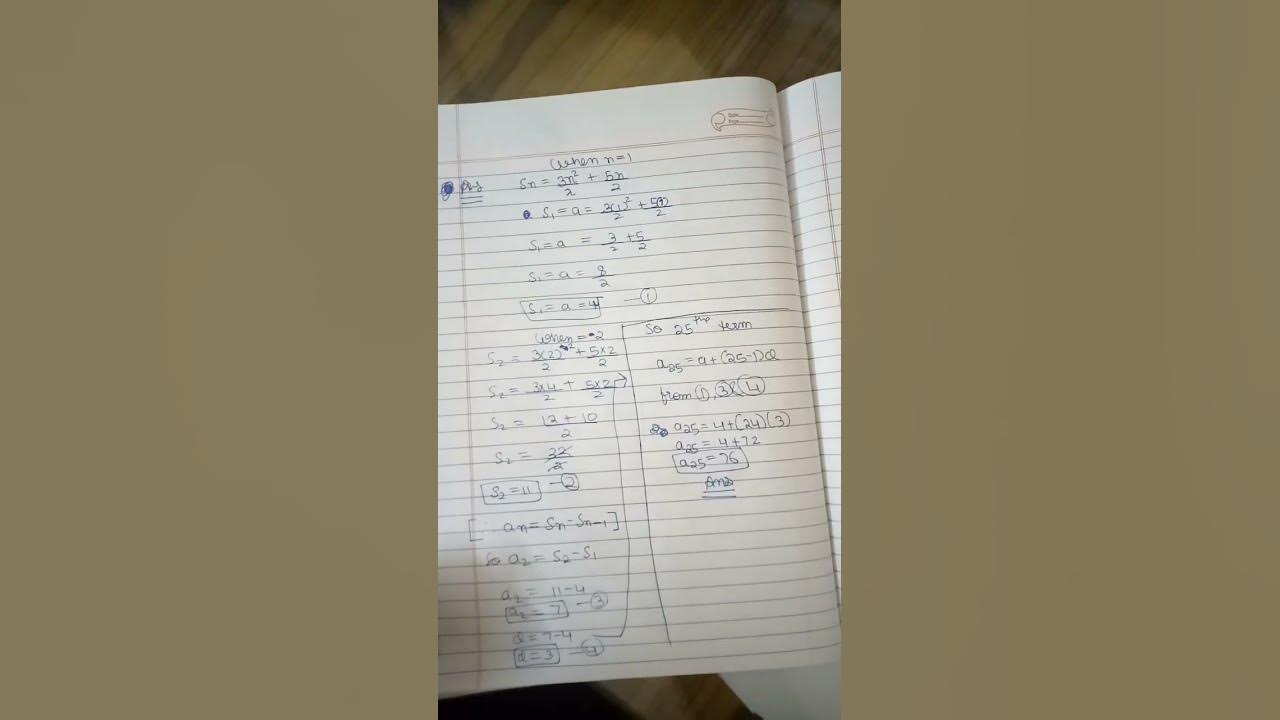 Date
Page
When n=1
Ans Sn = 3n²/2 + 5n/2
S₁ = a = 3(1)²/2 + 5(1)/2
S₁ = a = 3/2 + 5/2
S₁ = a = 8/2
S₁ = a = 4 — ①
When = 2
S₂ = 3(2)²/2 + 5×2/2
S₂ = 3×4/2 + 5×2/2
S₂ = 12 + 10/2
S₂ = 22/2
S₂ = 11 — ②
[∵ an = Sn - Sn-1]
So a₂ = S₂ - S₁
a₂ = 11-4
a₂ = 7 — ③
d = 7-4
d = 3 — ④
So 25th term
a₂₅ = a + (25-1)d
from ①, ③ & ④
a₂₅ = 4+(24)(3)
a₂₅ = 4+72
a₂₅ = 76
Ans